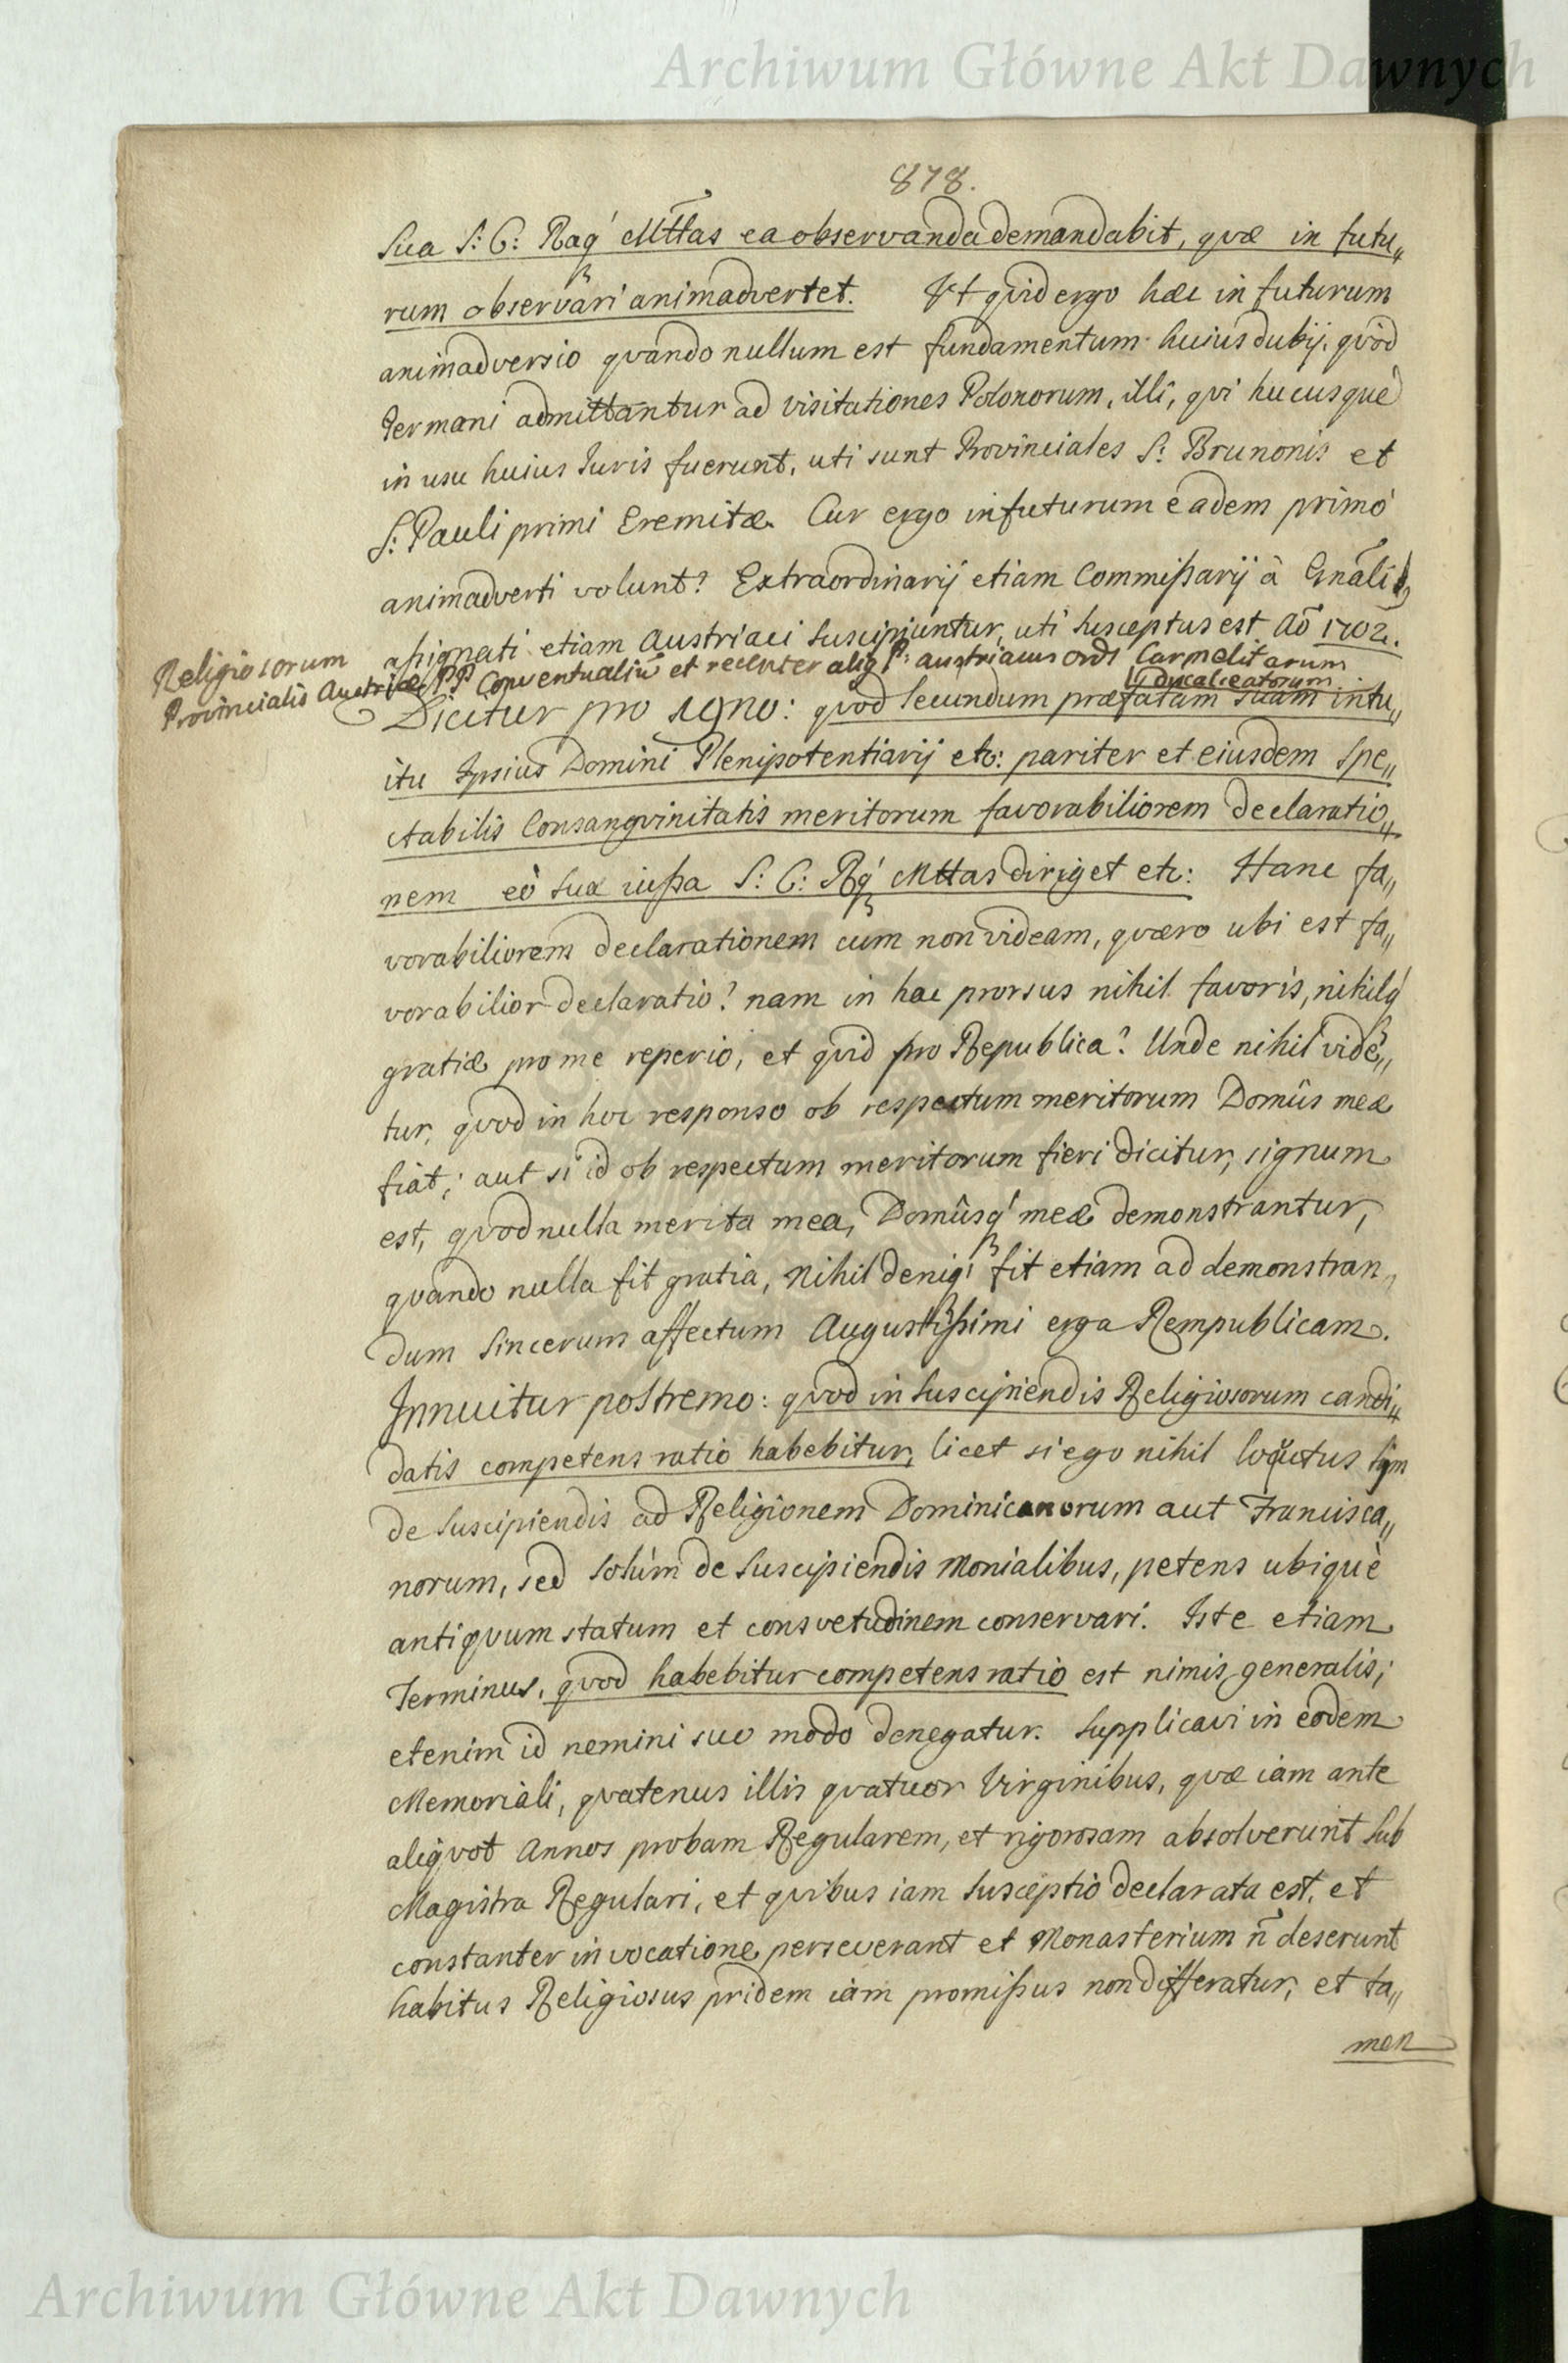 Archiwum Główne Akt Dawnych
878.
Sua S: C: Raq́ Mttas ea observanda demandabit, quæ in futu„
rum observari animadvertet. Ut quid ergo hæc in futurum
animadversio quando nullum est fundamentum huius dubij, quòd
Germani admittantur ad visitationes Polonorum, illi, qui hucusquè
in usu huius Iuris fuerunt, uti sunt Provinciales S: Brunonis et
S: Pauli primi Eremitæ. Cur ergo infuturum eadem primò
animadverti volunt? Extraordinarij etiam Commißarij à Gnãli
aßignati etiam Austriaci suscipiuntur, uti susceptus est Aõ 1702.
Religiosorum
Provincialis Austriæ PP Conventualiũ et recenter aliq P: austriacus Ord: Carmelitarum
Discalceatorum
Dicitur pro signo: quod secundum præfatam suam intu„
itu Ipsius Domini Plenipotentiarij etc: pariter et eiusdem Spe„
ctabilis Consangvinitatis meritorum favorabiliorem declaratio„
nem eò sua iußa S: C: Rq́ Mttas diriget etc: Hanc fa„
vorabiliorem declarationem cùm non videam, quæro ubi est fa„
vorabilior declaratio? nam in hac prorsus nihil favoris, nihilq́
gratiæ pro me reperio, et quid pro Republica? Unde nihil vide„
tur, quod in hoc responso ob respectum meritorum Domûs meæ
fiat; aut si id ob respectum meritorum fieri dicitur, signum
est, quod nulla merita mea, Domûsq́ meæ demonstrantur,
quando nulla fit gratia, Nihil deniq́ fit etiam ad demonstran„
dum sincerum affectum Augustißimi erga Rempublicam.
Innuitur postremo: quod in suscipiendis Religiosorum candi„
datis competens ratio habebitur, licet si ego nihil loqutus sim
de suscipiendis ad Religionem Dominicanorum aut Francisca„
norum, sed solùm de suscipiendis Monialibus, petens ubiquè
antiquum statum et consvetudinem conservari. Iste etiam
Terminus, quod habebitur competens ratio est nimis generalis;
etenim id nemini suo modo denegatur. Supplicavi in eodem
Memoriali, quatenus illis quatuor Virginibus, quæ iam ante
aliquot Annos probam Regularem, et rigorosam absolverunt sub
Magistra Regulari, et quibus iam susceptio declarata est, et
constanter in vocatione perseverant et Monasterium ñ deserunt
habitus Religiosus pridem iam promißus non differatur, et ta„
men
Archiwum Główne Akt Dawnych